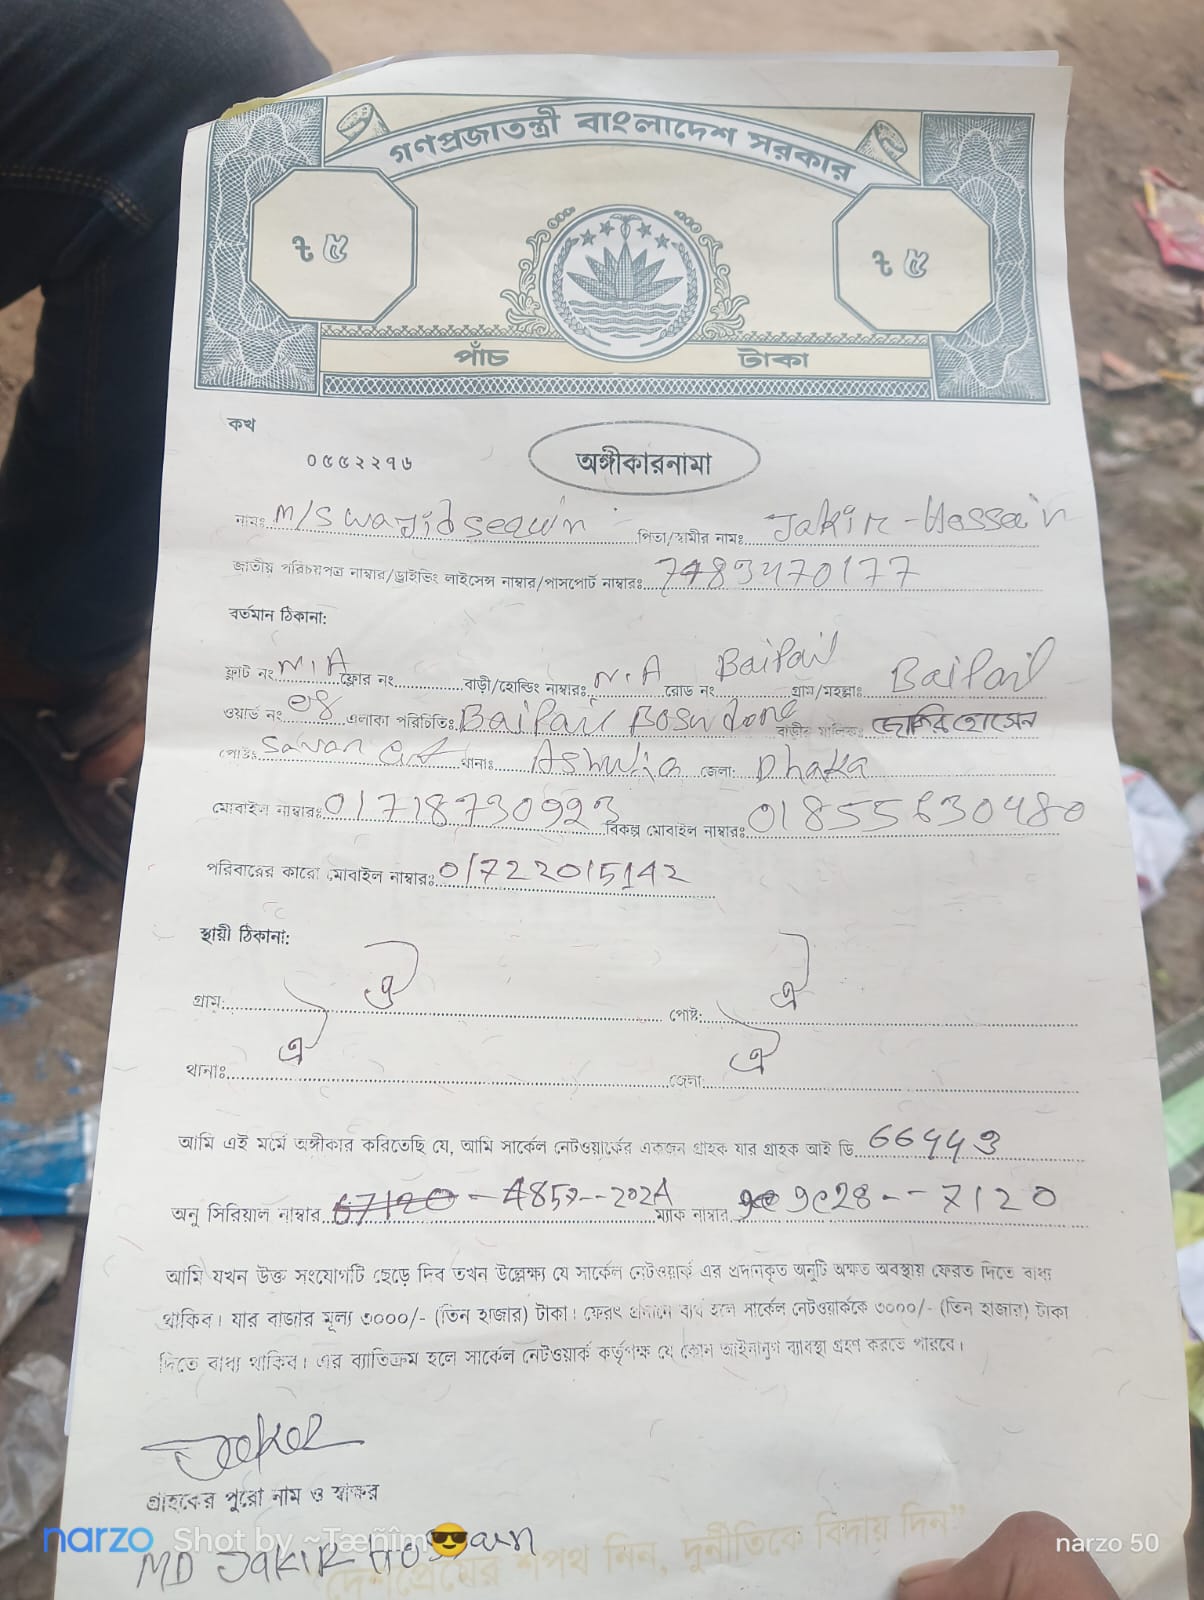 গণপ্রজাতন্ত্রী বাংলাদেশ সরকার
৳ ৫ ৳ ৫
পাঁচ টাকা
কখ
০৫৫২২৭৬
অঙ্গীকারনামা
নামঃ M/S পিতা/স্বামীর নামঃ Jakir-Hossain
জাতীয় পরিচয়পত্র নাম্বার/ড্রাইভিং লাইসেন্স নাম্বার/পাসপোর্ট নাম্বারঃ
বর্তমান ঠিকানা:
ফ্লাট নং N.A ফ্লোর নং বাড়ী/হোল্ডিং নাম্বারঃ N.A রোড নং Baipail গ্রাম/মহল্লাঃ Baipail
ওয়ার্ড নং ০৪ এলাকা পরিচিতিঃ Baipail বাড়ীর মালিকঃ হোসেন
পোষ্টঃ Savar থানাঃ Ashulia জেলা: Dhaka
মোবাইল নাম্বারঃ 01718730923 বিকল্প মোবাইল নাম্বারঃ 01855630480
পরিবারের কারো মোবাইল নাম্বারঃ 01722015142
স্থায়ী ঠিকানা:
গ্রাম: ঐ পোষ্ট: ঐ
থানাঃ ঐ জেলা: ঐ
আমি এই মর্মে অঙ্গীকার করিতেছি যে, আমি সার্কেল নেটওয়ার্কের একজন গ্রাহক যার গ্রাহক আই ডি
অনু সিরিয়াল নাম্বার ম্যাক নাম্বার 9C28--7120
আমি যখন উক্ত সংযোগটি ছেড়ে দিব তখন উল্লেক্ষ্য যে সার্কেল নেটওয়ার্ক এর প্রদানকৃত অনুটি অক্ষত অবস্থায় ফেরত দিতে বাধ্য
থাকিব। যার বাজার মূল্য ৩০০০/- (তিন হাজার) টাকা। ফেরৎ প্রদানে ব্যর্থ হলে সার্কেল নেটওয়ার্ককে ৩০০০/- (তিন হাজার) টাকা
দিতে বাধ্য থাকিব। এর ব্যাতিক্রম হলে সার্কেল নেটওয়ার্ক কর্তৃপক্ষ যে কোন আইনানুগ ব্যাবস্থা গ্রহণ করতে পারবে।
গ্রাহকের পুরো নাম ও স্বাক্ষর
narzo Shot by ~Tæñîm😎 narzo 50
MD Jakir
দেশপ্রেমের শপথ নিন, দুর্নীতিকে বিদায় দিন"